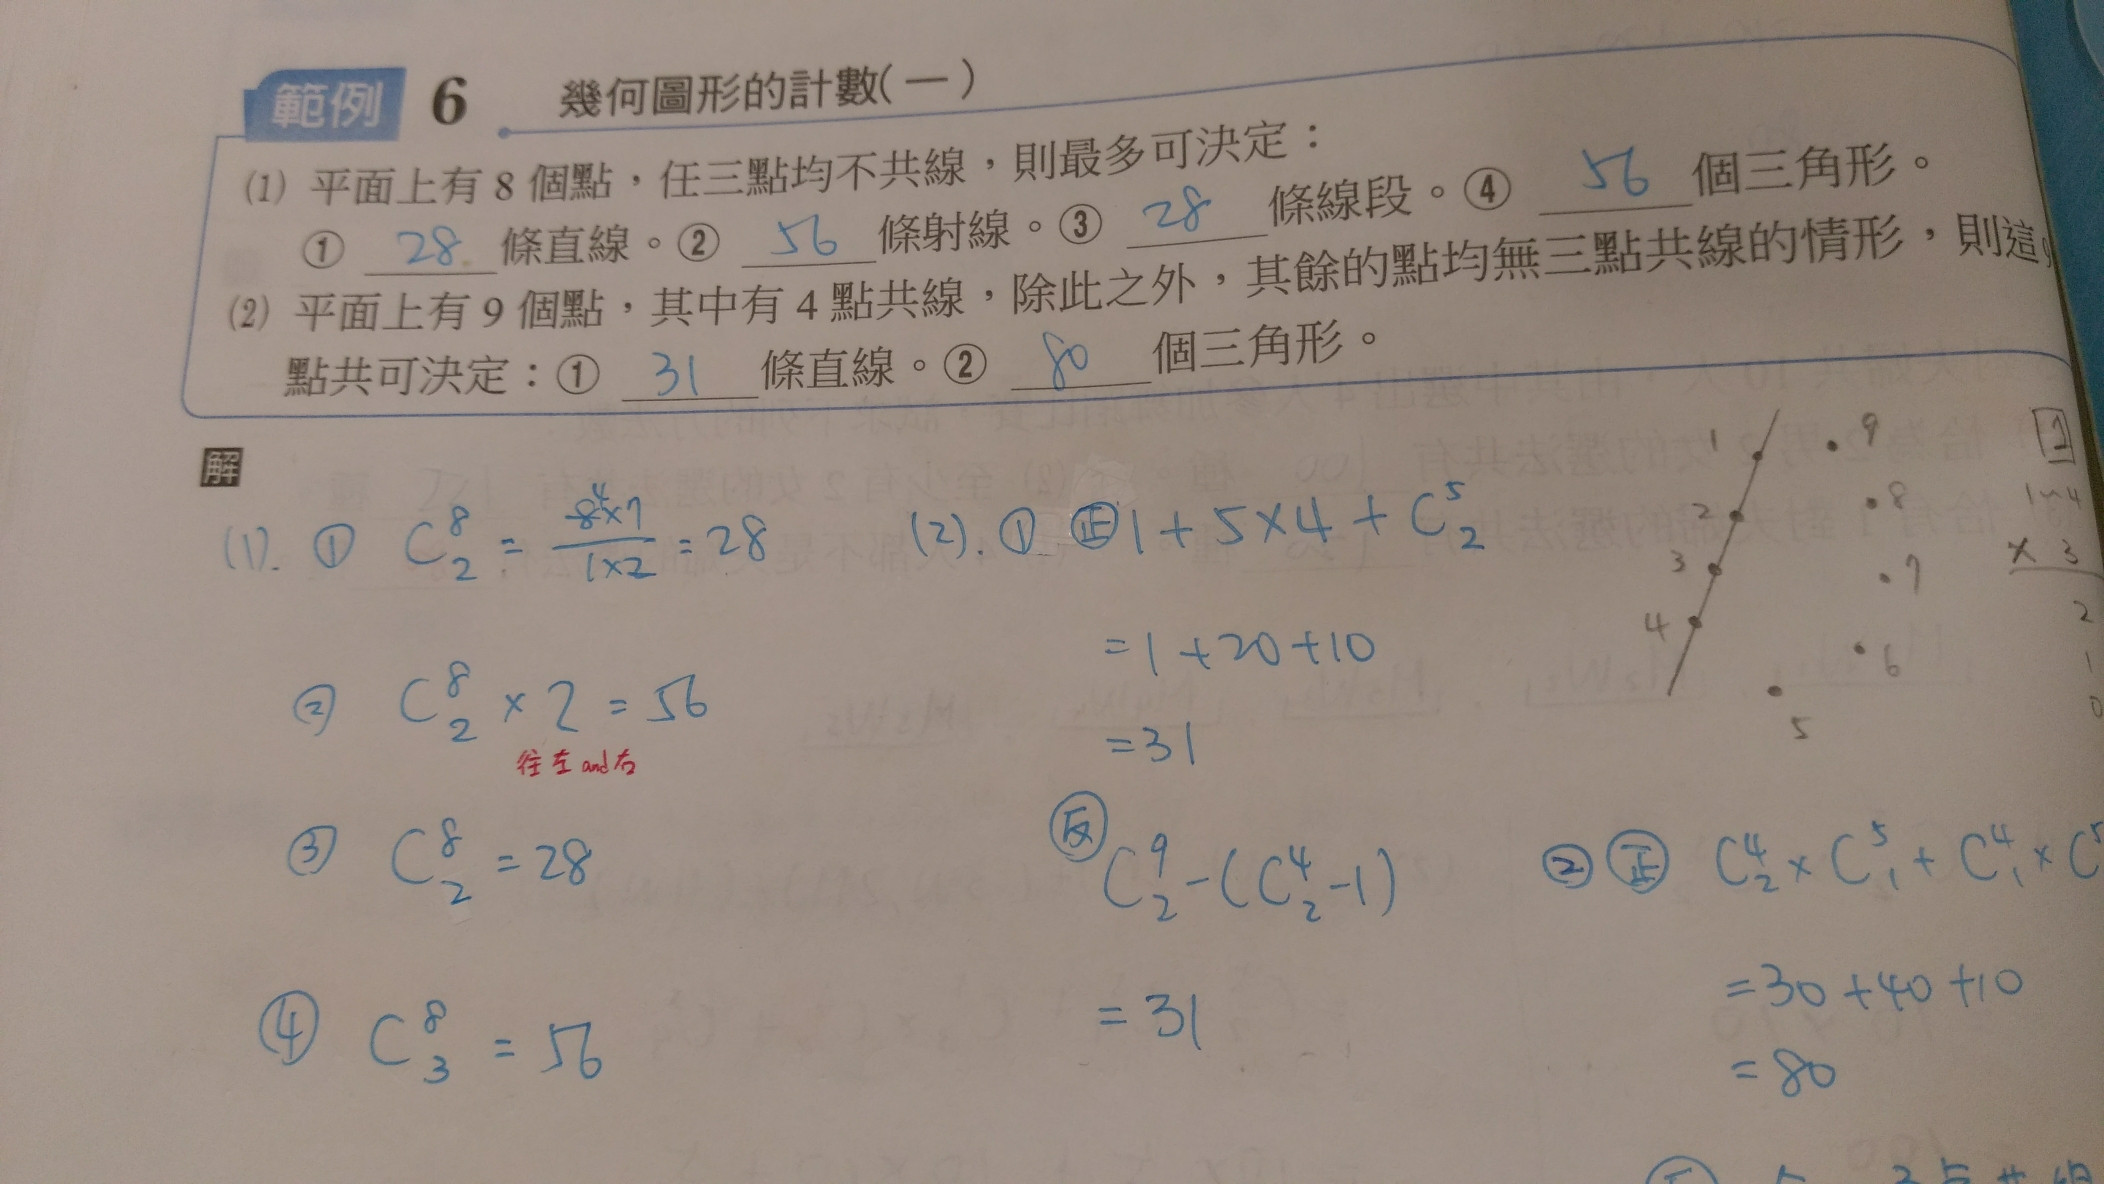 範例 6 幾何圖形的計數(一)
(1) 平面上有 8 個點，任三點均不共線，則最多可決定：
① 28 條直線。② 56 條射線。③ 28 條線段。④ 56 個三角形。
(2) 平面上有 9 個點，其中有 4 點共線，除此之外，其餘的點均無三點共線的情形，則這9
點共可決定：① 31 條直線。② 80 個三角形。
解
(1). ① C⁸₂ = 8⁴×7 / 1×2 = 28
② C⁸₂ × 2 = 56
往左and右
③ C⁸₂ = 28
④ C⁸₃ = 56
(2). ① 正 1 + 5×4 + C⁵₂
= 1 + 20 + 10
= 31
反 C⁹₂ - (C⁴₂ - 1)
= 31
1
2
3
4
5
6
7
8
9
1~4
× 3
2
1
0
② 正 C⁴₂ × C⁵₁ + C⁴₁ × C⁵
= 30 + 40 + 10
= 80